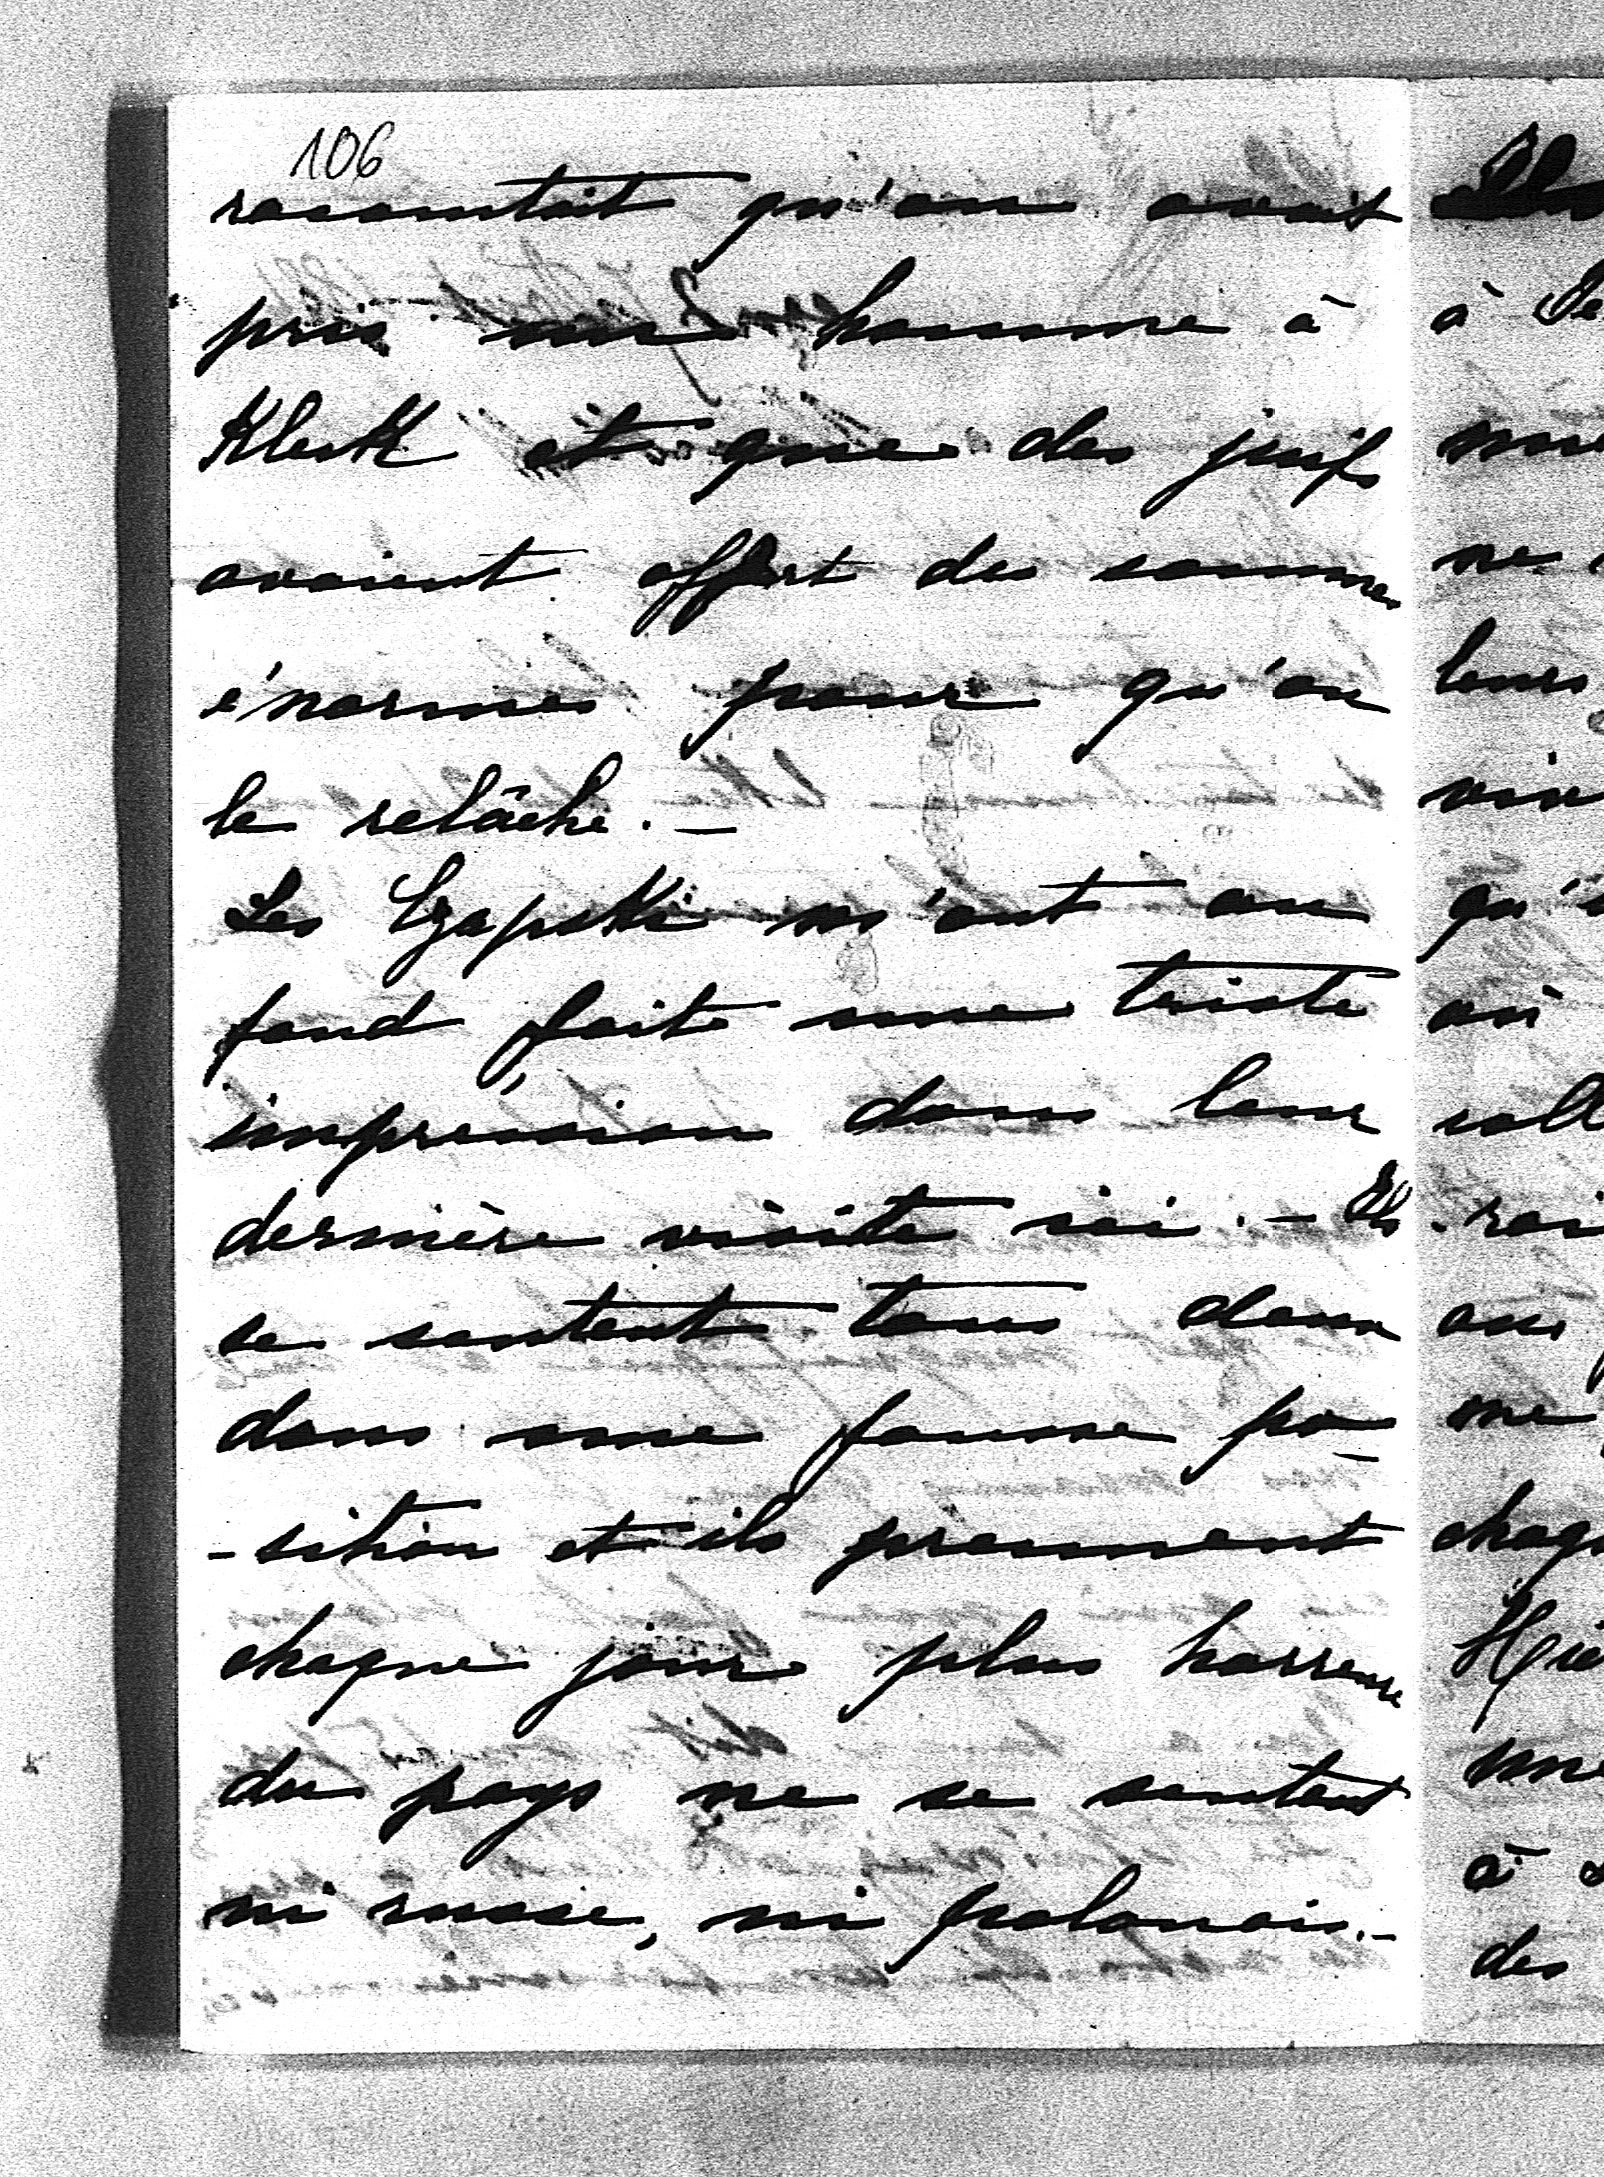 106
racontait qu'on avait
pris un homme à
Kleck et que des juifs
avaient offert des sommes
énormes pour qu'on
le relâche. —
Les Czapski m'ont au
fond faite une triste
impression dans leur
dernière visite ici. — Ils
se sentent tous deux
dans une fausse po-
-sition et ils prennent
chaque jour plus horreur
du pays ne se sentent
ni russe, ni polonais. –